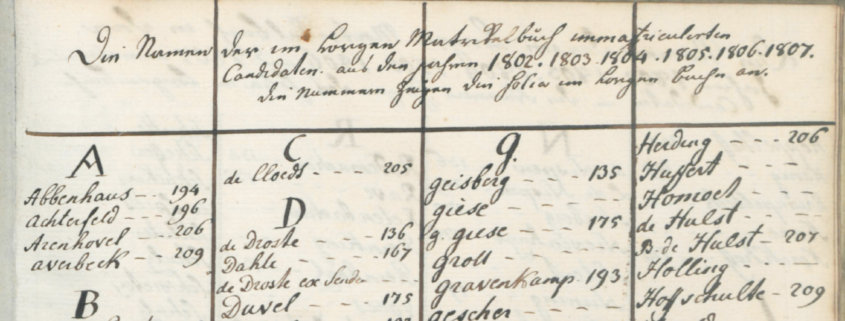 Die Namen der im vorgen Matrikelbuch immatriculirten
Candidaten. aus den Jahren 1802. 1803. 1804. 1805. 1806. 1807.
die Nummern zeigen die folia im vorgen buche an.
A
Abbenhaus - - 194
achterfeld - - - 196
Arenhovel - - - 206
averbeck - - - 209
B
C
de Cloedt - - - 205
D
de Droste - - - 136
Dahle - - - - 167
de Droste ex Senden
Duvel - - - 175
g.
geisberg - - - 135
giese - - - -
g. giese - - - 175
groll - - - -
gravenkamp - 193
gescher - - - -
Herding - - - 206
Huffert - - -
Homoet - - -
de Hulst - - -
B. de Hulst - 207
Holling - - -
Hoffschulte - 209